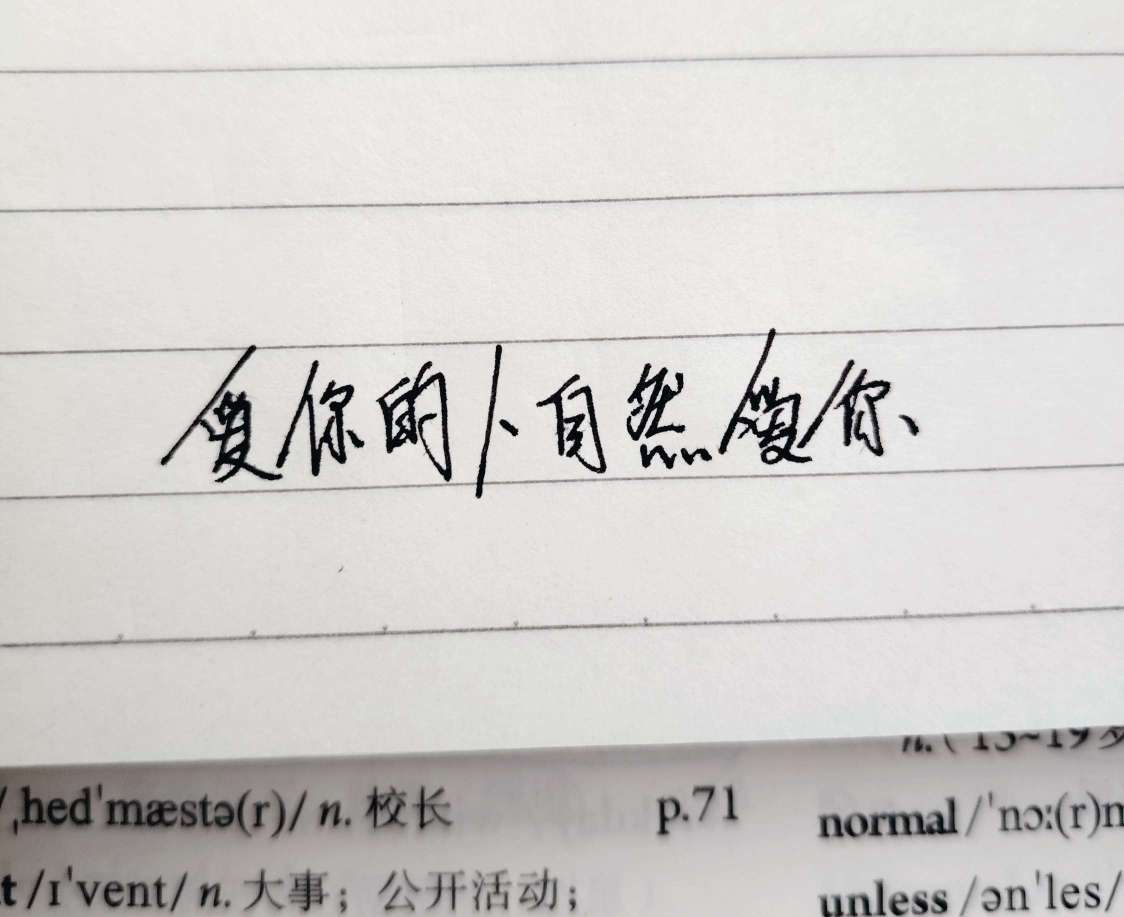 爱你的人自然爱你、
n.(13~19岁
/ˌhedˈmæstə(r)/ n. 校长 p.71 normal /ˈnɔ:(r)m
t /ɪˈvent/ n. 大事；公开活动； unless /ənˈles/